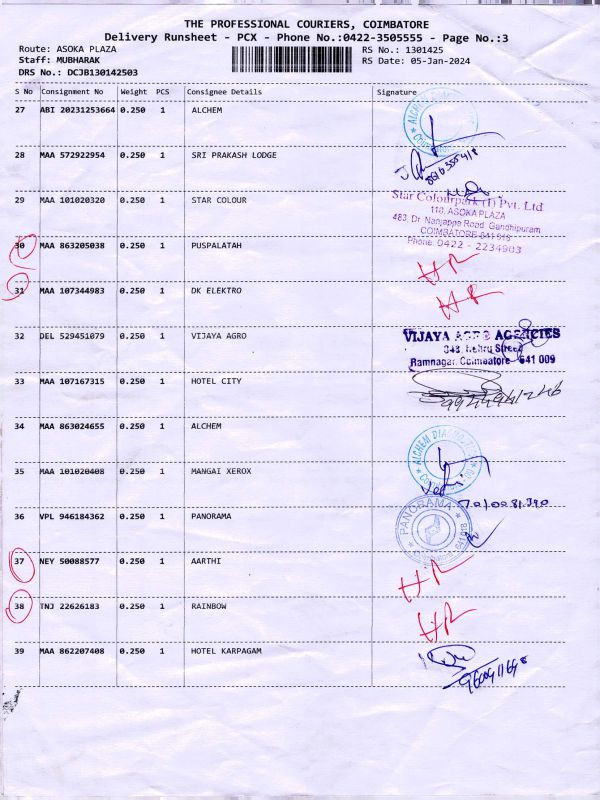 THE PROFESSIONAL COURIERS, COIMBATORE
Delivery Runsheet - PCX - Phone No.:0422-3505555 - Page No.:3
Route: ASOKA PLAZA RS No.: 1301425
Staff: MUBHARAK RS Date: 05-Jan-2024
DRS No.: DCJB130142503
S No Consignment No Weight PCS Consignee Details Signature
27 ABI 20231253664 0.250 1 ALCHEM
28 MAA 572922954 0.250 1 SRI PRAKASH LODGE
29 MAA 101020320 0.250 1 STAR COLOUR
Star Colourpark (I) Pvt. Ltd
110, ASOKA PLAZA
483, Dr. Nanjappa Road, Gandhipuram
COIMBATORE-641 018
Phone: 0422 - 2234903
30 MAA 863205038 0.250 1 PUSPALATAH
31 MAA 107344983 0.250 1 DK ELEKTRO
32 DEL 529451079 0.250 1 VIJAYA AGRO
VIJAYA AGRO AGENCIES
343, Nehru Street
Ramnagar, Coimbatore 641 009
33 MAA 107167315 0.250 1 HOTEL CITY
34 MAA 863024655 0.250 1 ALCHEM
35 MAA 101020408 0.250 1 MANGAI XEROX
36 VPL 946184362 0.250 1 PANORAMA
PANORAMA
37 NEY 50088577 0.250 1 AARTHI
38 TNJ 22626183 0.250 1 RAINBOW
39 MAA 862207408 0.250 1 HOTEL KARPAGAM